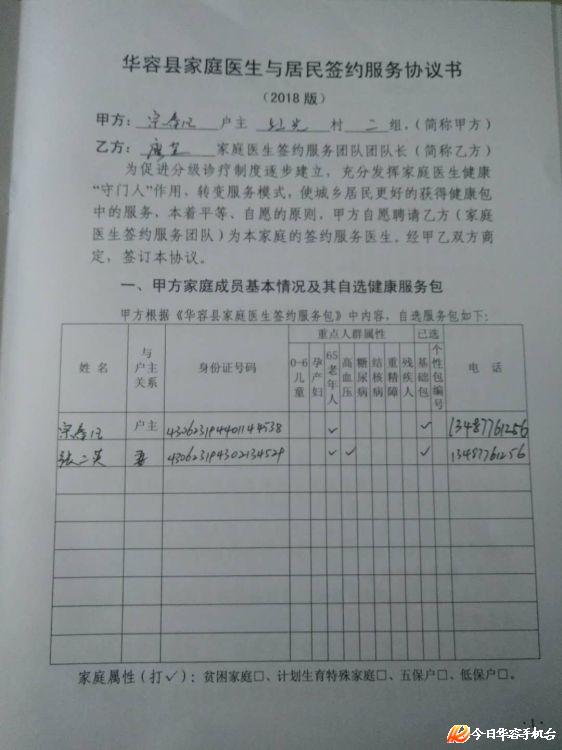 华容县家庭医生与居民签约服务协议书
（2018 版）
甲方： 户主 红光 村 二 组，（简称甲方）
乙方： 家庭医生签约服务团队团队长（简称乙方）
为促进分级诊疗制度逐步建立，充分发挥家庭医生健康
“守门人”作用，转变服务模式，使城乡居民更好的获得健康包
中的服务，本着平等、自愿的原则，甲方自愿聘请乙方（家庭
医生签约服务团队）为本家庭的签约服务医生。经甲乙双方商
定，签订本协议。
一、甲方家庭成员基本情况及其自选健康服务包
甲方根据《华容县家庭医生签约服务包》中内容，自选服务包如下：
姓 名 与户主关系 身份证号码 重点人群属性 已选 电 话
0-6儿童 孕产妇 65老年人 高血压 糖尿病 结核病 重精障 残疾人 基础包 个性包编号
户主 430623194401144538 ✓ ✓ 13487761256
张二英 妻 430623194302134529 ✓ ✓ ✓ 13487761256
家庭属性（打✓）：贫困家庭□、计划生育特殊家庭□、五保户□、低保户□。
·1·
今日华容手机台